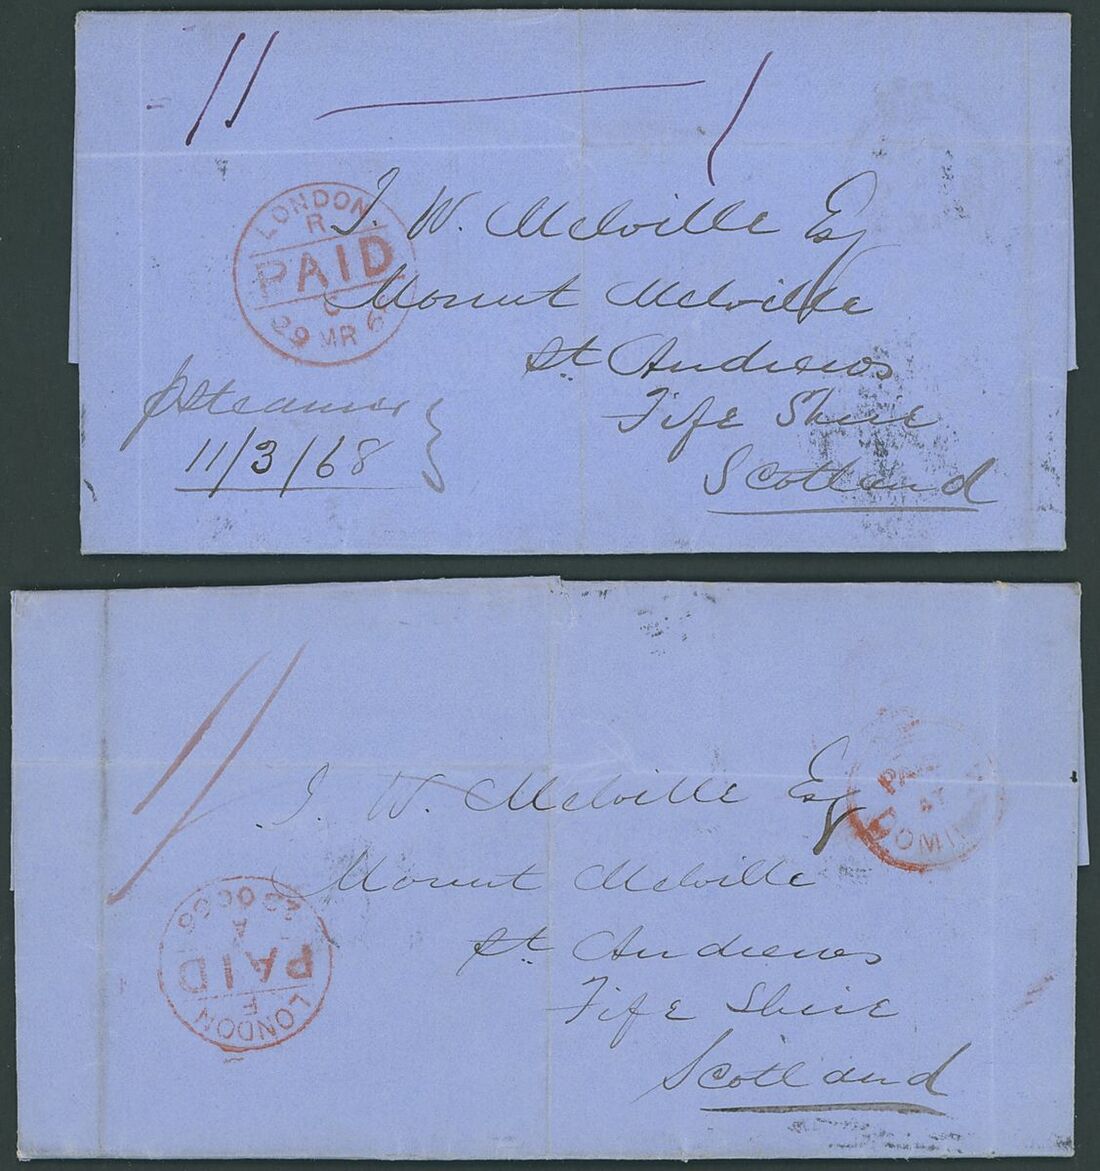 LONDON
R
PAID
29 MR 6
J. W. Melville Esq
Mount Melville
St Andrews
Fife Shire
Scotland
p Steamer
11/3/68
J. W. Melville Esq
Mount Melville
St Andrews
Fife Shire
Scotland
PA
AT
DOMI
LONDON
F
PAID
A
OC 66